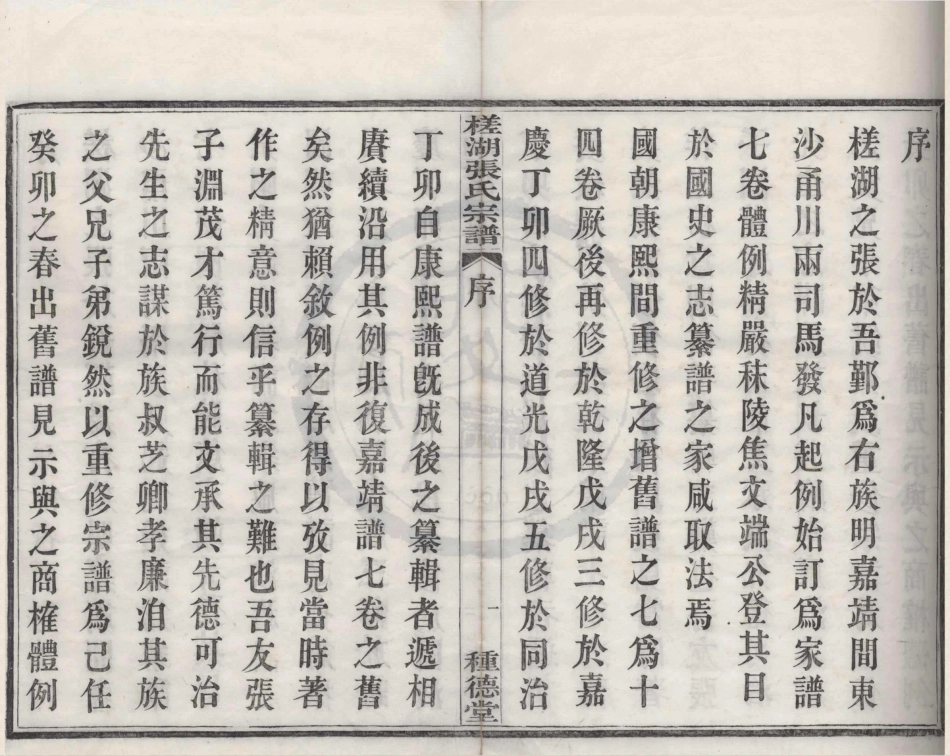 序
槎湖之張於吾鄞爲右族明嘉靖間東
沙甬川兩司馬發凡起例始訂爲家譜
七卷體例精嚴秣陵焦文端公登其目
於國史之志纂譜之家咸取法焉
國朝康熙間重修之增舊譜之七爲十
四卷厥後再修於乾隆戊戌三修於嘉
慶丁卯四修於道光戊戌五修於同治
槎湖張氏宗譜 序 一 種德堂
丁卯自康熙譜旣成後之纂輯者遞相
賡續沿用其例非復嘉靖譜七卷之舊
矣然猶賴敘例之存得以攷見當時著
作之精意則信乎纂輯之難也吾友張
子淵茂才篤行而能文承其先德可治
先生之志謀於族叔芝卿孝廉洎其族
之父兄子弟銳然以重修宗譜爲己任
癸卯之春出舊譜見示與之商榷體例